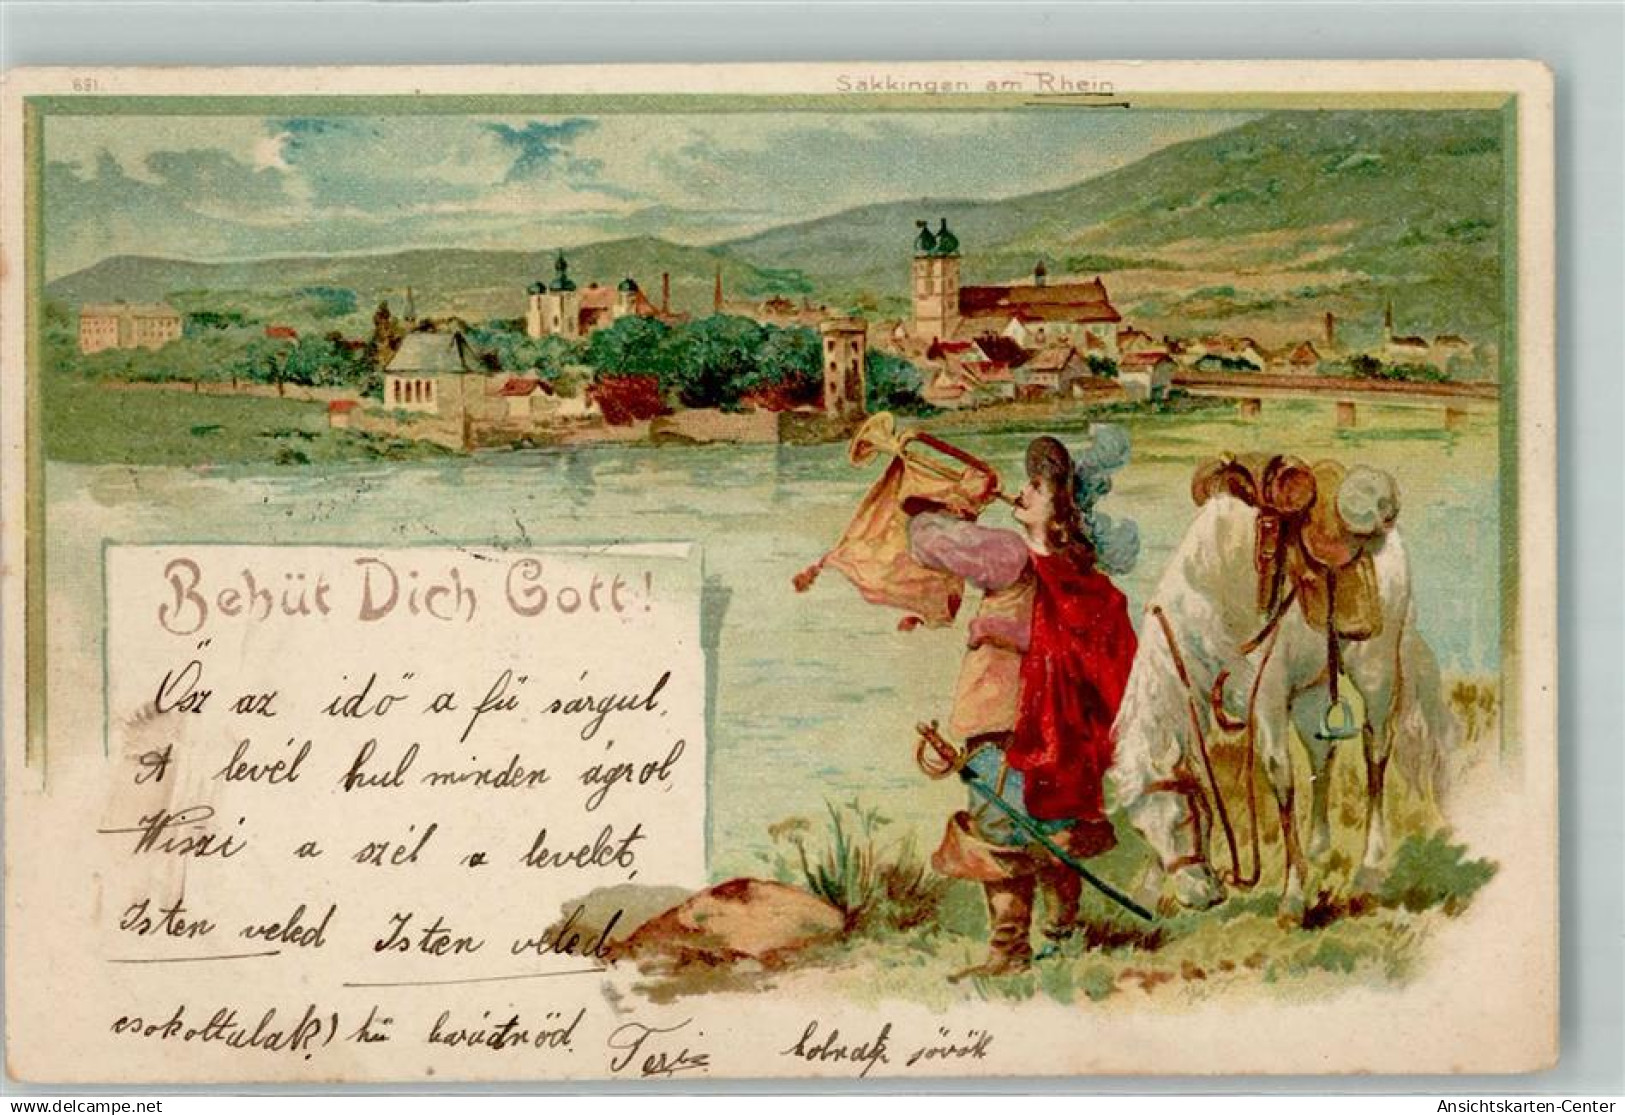 691.
Säkkingen am Rhein
Behüt Dich Gott!
Ősz az idő a fű sárgul,
A levél hul minden ágrol,
Wiszi a szél a levelet,
Isten veled Isten veled.
csokoltulak! hű barátnőd. Teriz holnap jövök
delcampe.net
Ansichtskarten-Center